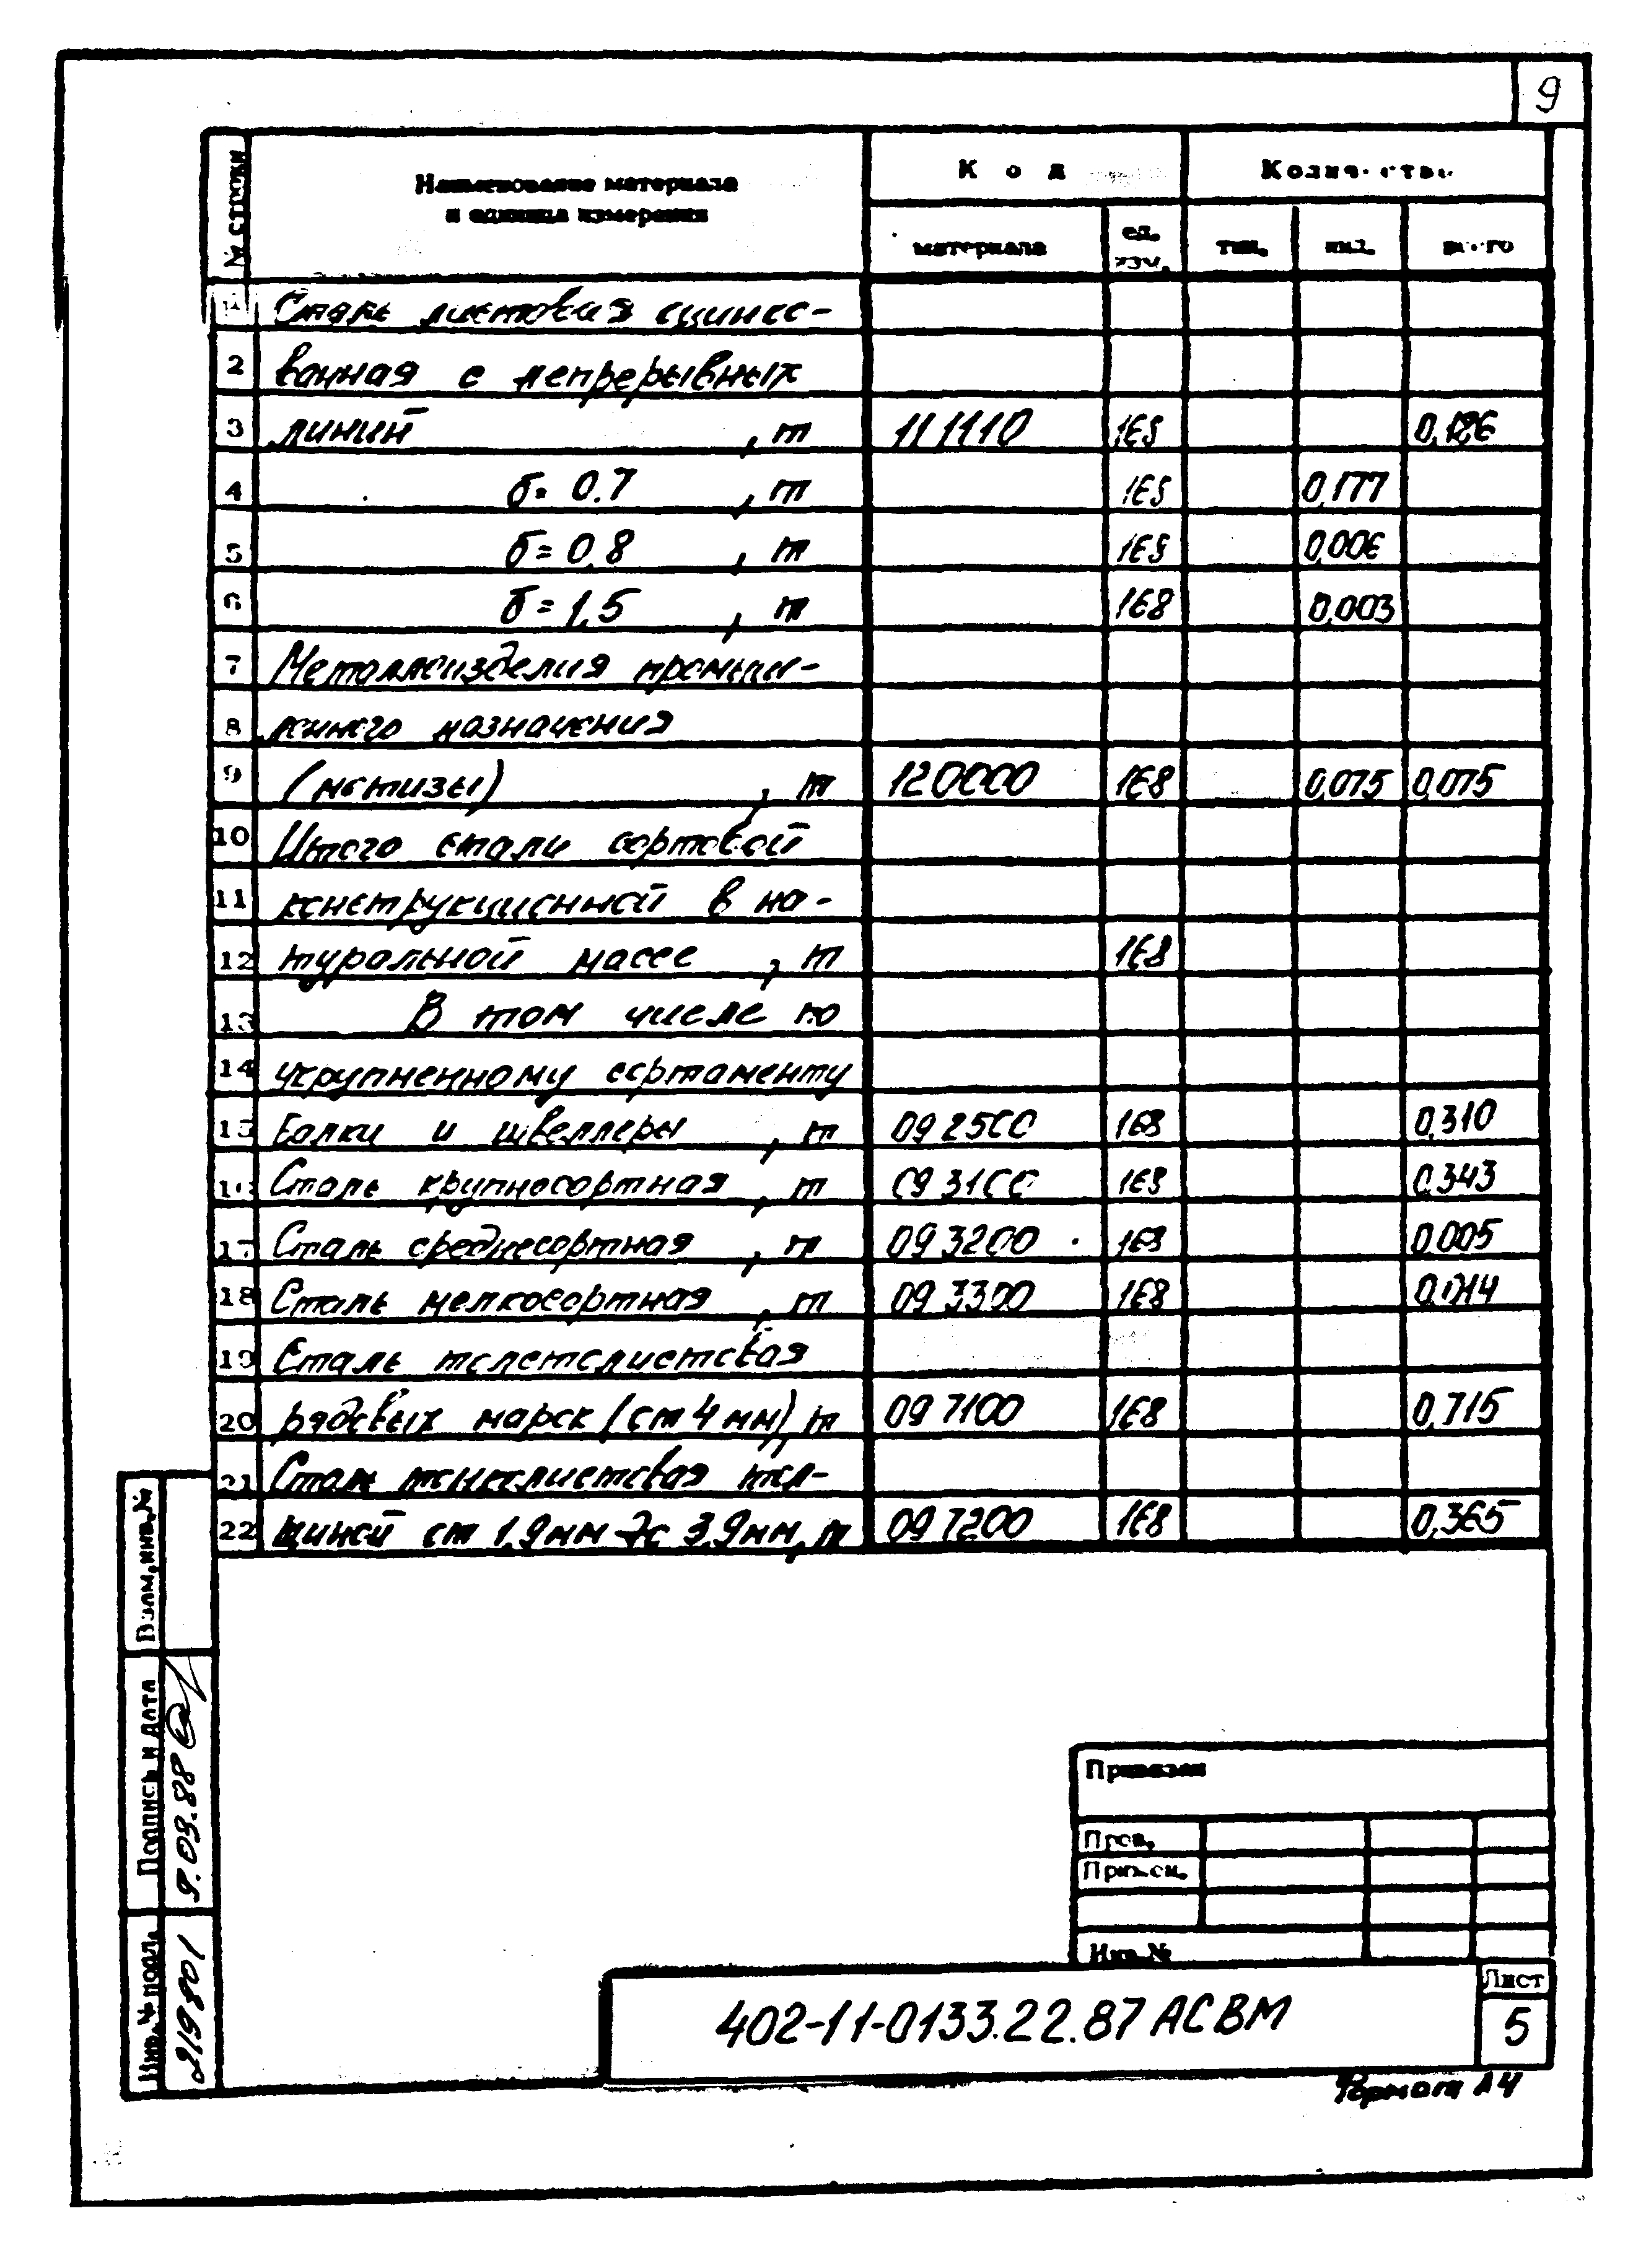 9
№ строки
Наименование материала
и единица измерения
Код
Количество
материала
ед. изм.
тип.
инд.
всего
1 Сталь листовая оцинко-
2 ванная с непрерывных
3 линий , т 111110 168 0,186
4 δ= 0.7 , т 168 0,177
5 δ= 0,8 , т 168 0,006
6 δ= 1,5 , т 168 0,003
7 Металлоизделия промыш-
8 ленного назначения
9 (метизы) , т 120000 168 0,075 0,075
10 Итого стали сортовой
11 конструкционной в на-
12 туральной массе , т 168
13 В том числе по
14 укрупненному сортаменту
15 Балки и швеллеры , т 092500 168 0,310
16 Сталь крупносортная , т 093100 168 0,343
17 Сталь среднесортная , т 093200 168 0,005
18 Сталь мелкосортная , т 093300 168 0,014
19 Сталь толстолистовая
20 рядовых марок (от 4 мм), т 097100 168 0,715
21 Сталь тонколистовая тол-
22 щиной от 1,9 мм до 3,9 мм, т 097200 168 0,365
Взам. инв. №
Подпись и дата
9.03.88
Инв. № подл.
21980/1
Привязан
Пров.
Инв. №
402-11-0133.22.87 АСВМ
Лист
5
Формат А4